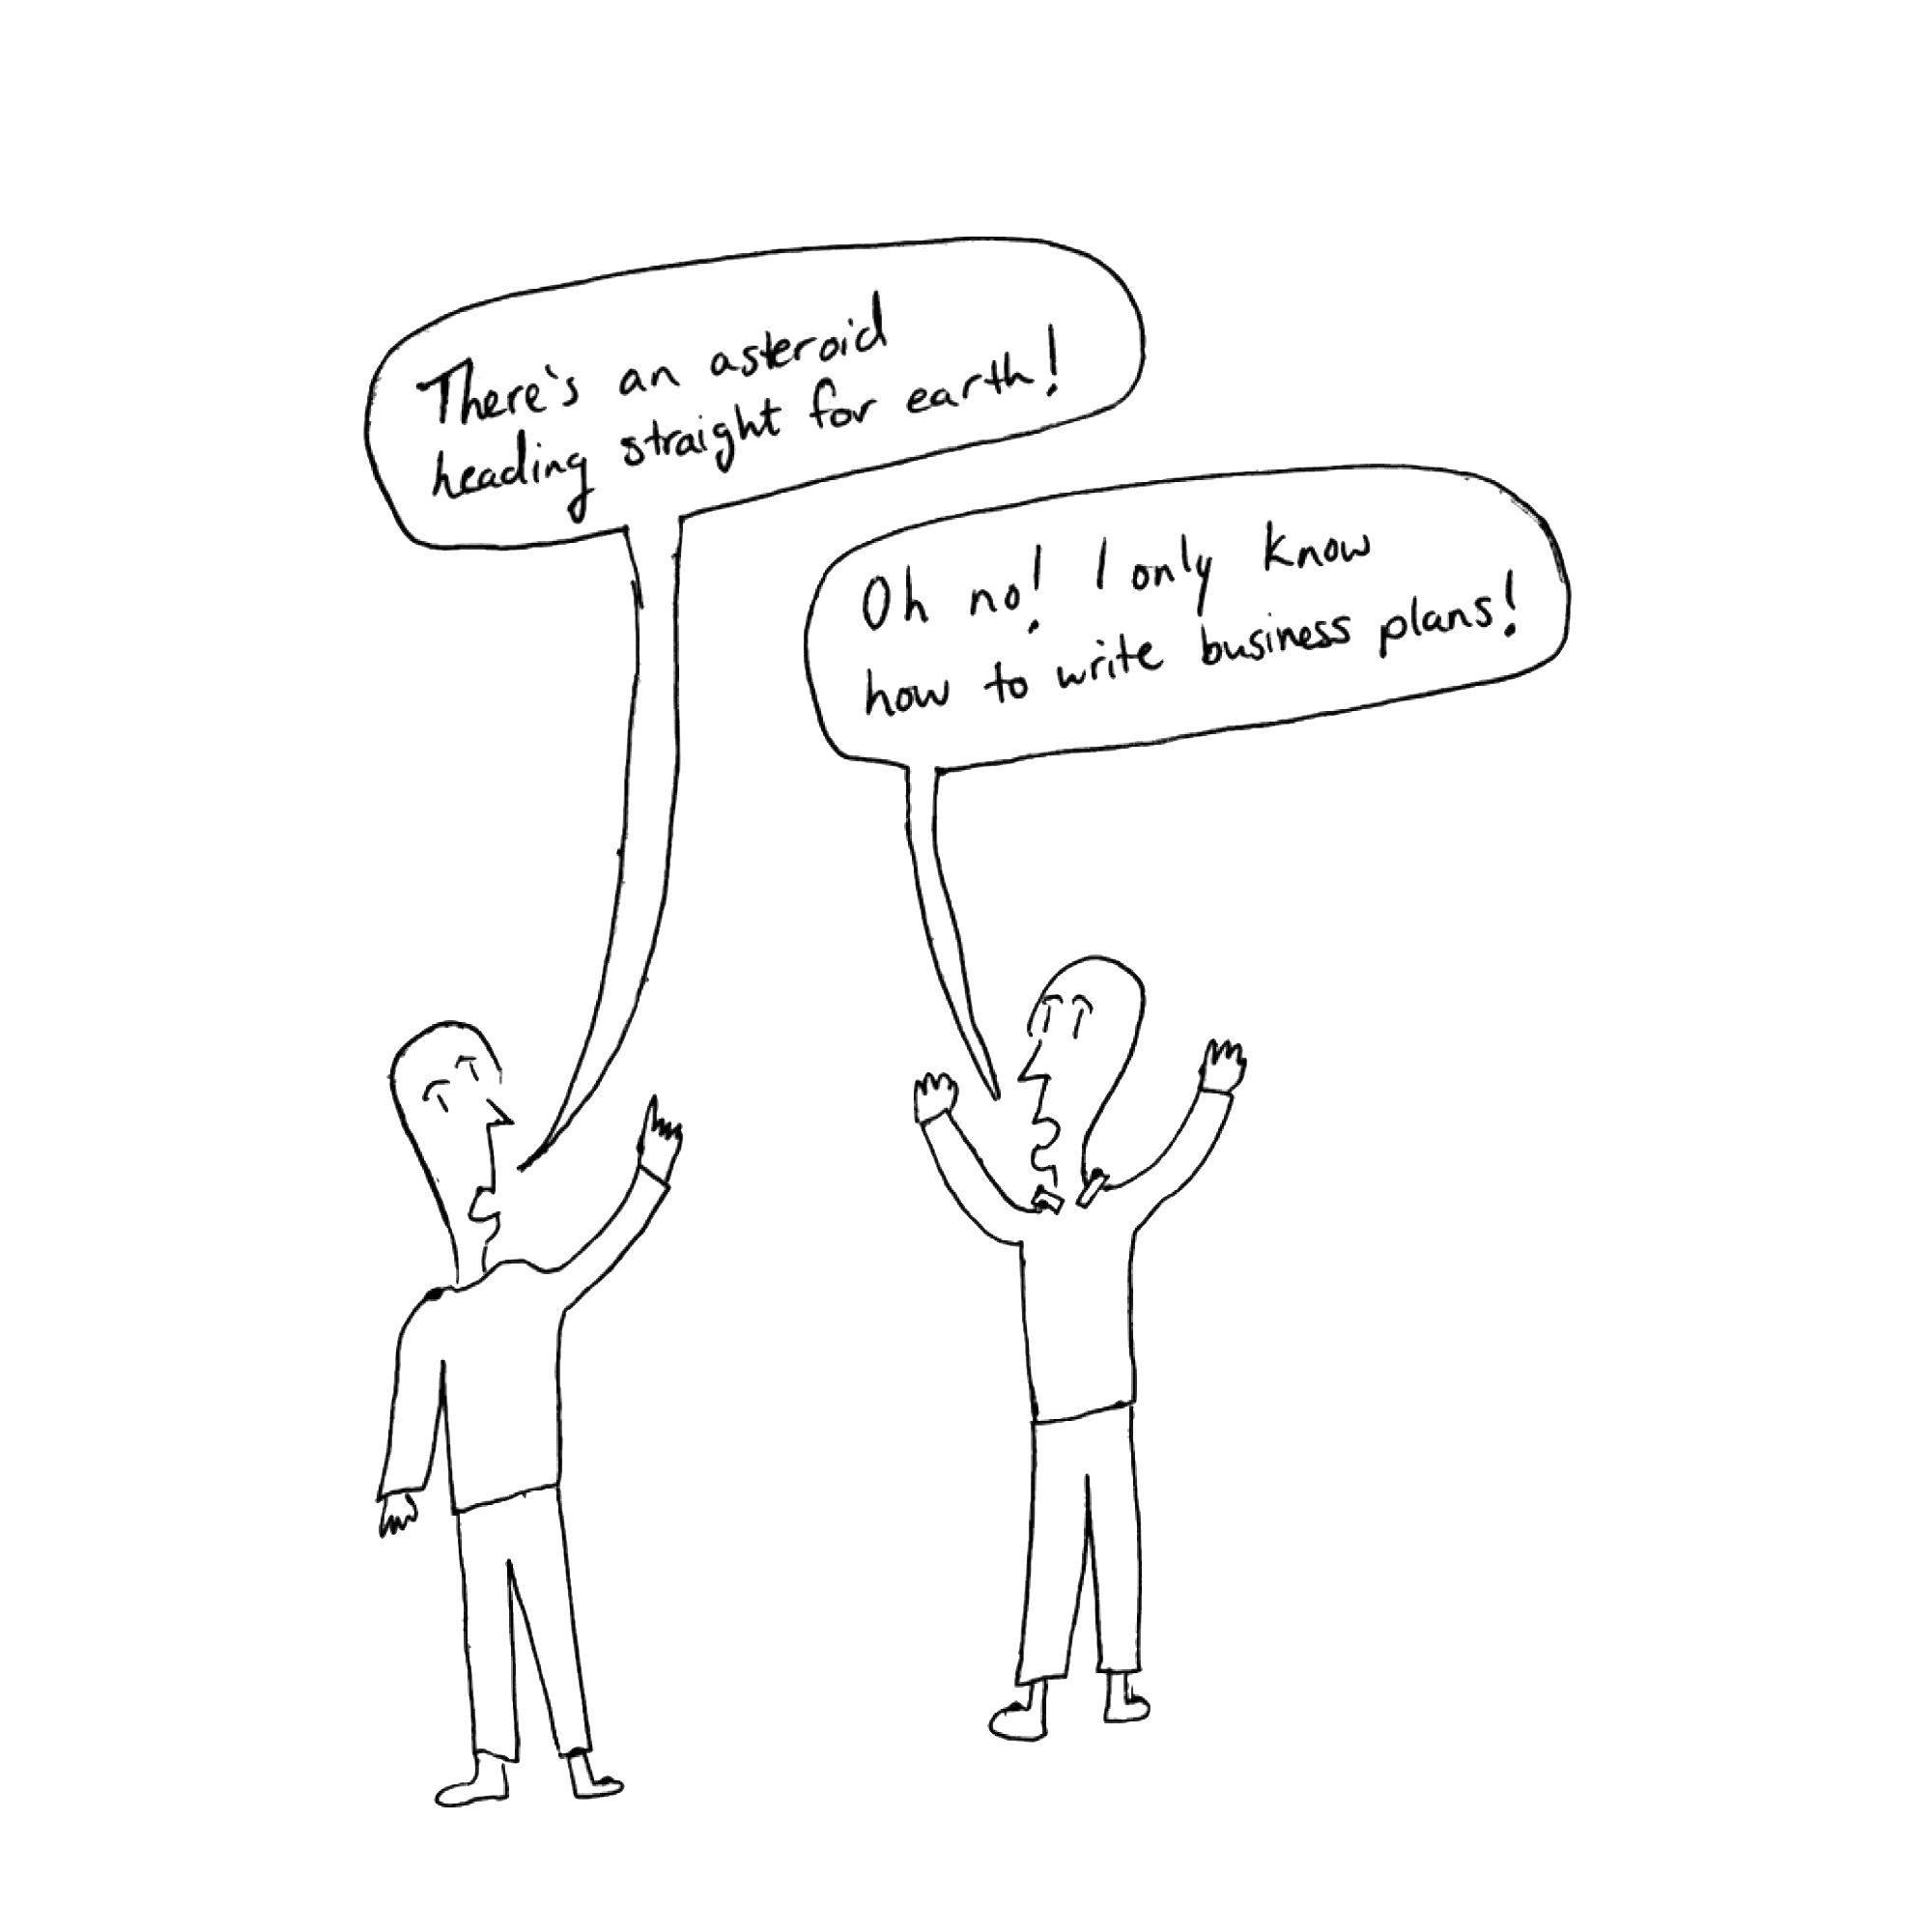 There's an asteroid
heading straight for earth!
Oh no! I only know
how to write business plans!